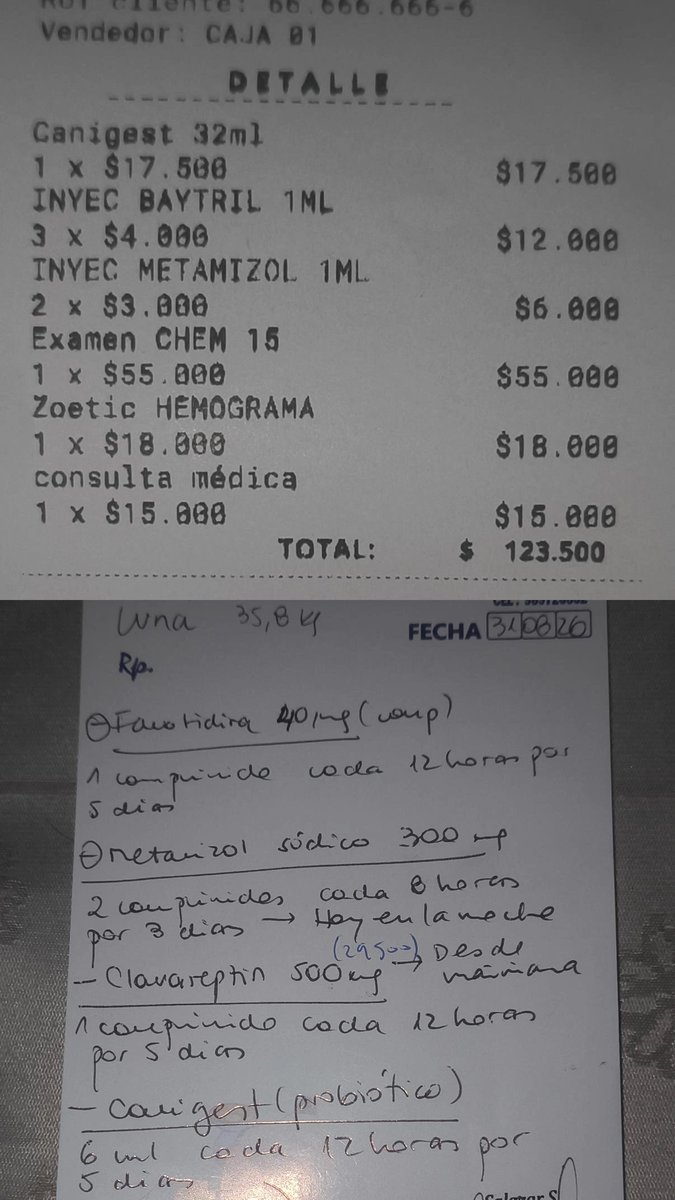 RUT cliente: 66.666.666-6
Vendedor: CAJA 01
DETALLE
Canigest 32ml
1 x $17.500 $17.500
INYEC BAYTRIL 1ML
3 x $4.000 $12.000
INYEC METAMIZOL 1ML
2 x $3.000 $6.000
Examen CHEM 15
1 x $55.000 $55.000
Zoetic HEMOGRAMA
1 x $18.000 $18.000
consulta médica
1 x $15.000 $15.000
TOTAL: $ 123.500
Luna 35,8 kg
FECHA 31 08 26
Rp.
Famotidina 40 mg (comp)
1 comprimido cada 12 horas por
5 dias
Metamizol sódico 300 mg
2 comprimidos cada 8 horas
por 3 dias → Hoy en la noche
(29.500) → Desde
- Clavaseptin 500mg mañana
1 comprimido cada 12 horas
por 5 dias
- Canigest (probiótico)
6 ml cada 12 horas por
5 dias